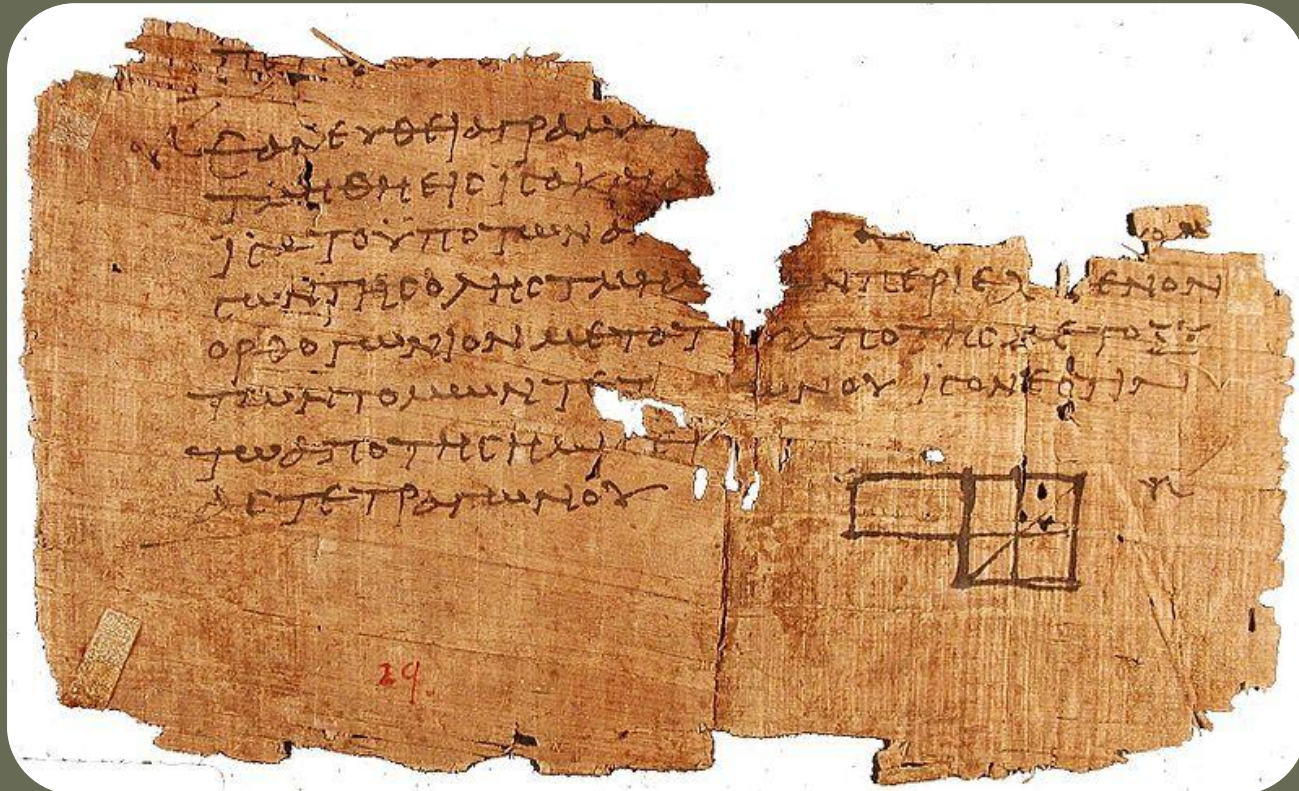 ΕΑΝ ΕΥΘΕΙΑ ΓΡΑΜΜ
ΤΜΗΘΗ ΕΙϹ ΙϹΑ Κ ΑΝ
ΙϹΑ ΤΟ ΥΠΟ ΤΩΝ ΑΝ
ϹΩΝ ΤΗϹ ΟΛΗϹ ΤΜΗΜ ΩΝ ΠΕΡΙΕΧ ΜΕΝΟΝ
ΟΡΘΟΓΩΝΙΟΝ ΜΕΤΑ ΤΟΥ ΑΠΟ ΤΗϹ ΜΕΤΟΞΥ
ΤΩΝ ΤΟΜΩΝ ΤΕΤ ΩΝΟΥ ΙϹΟΝ ΕϹΤΙΝ
ΤΩ ΑΠΟ ΤΗϹ ΗΜΙ
ΑϹ ΤΕΤΡΑΓΩΝΟΥ
29.